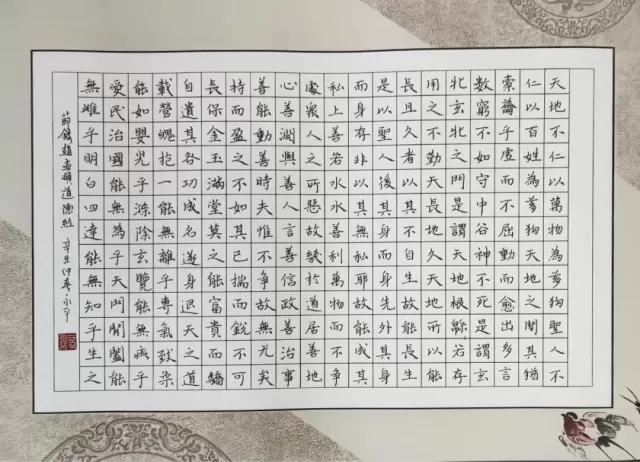 天地不仁以萬物為芻狗聖人不
仁以百姓為芻狗天地之間其猶
索籥乎虛而不屈動而愈出多言
數窮不如守中谷神不死是謂玄
牝玄牝之門是謂天地根緜若存
用之不勤天長地久天地所以能
長且久者以其不自生故能長生
是以聖人後其身而身先外其身
而身存非以其無私耶故能成其
私上善若水水善利萬物而不爭
處衆人之所惡故幾於道居善地
心善淵與善人言善信政善治事
善能動善時夫惟不爭故無尤矣
持而盈之不如其已揣而銳不可
長保金玉滿堂莫之能富貴而驕
自遺其咎功成名遂身退天之道
載營魄抱一能無離乎專氣致柔
能如嬰兒乎滌除玄覽能無疵乎
愛民治國能無為乎天門開闔能
無雌乎明白四達能無知乎生之
節錄趙孟頫道德經 辛丑仲春